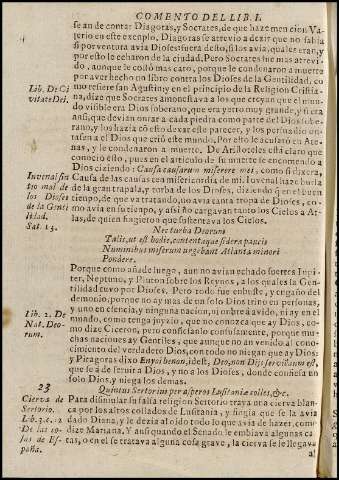 COMENTO DEL LIB. I.
se an de contar Diagoras, y Socrates, de que haze mencion Va-
lerio en este exemplo. Diagoras se atrevio a dezir que no sabia
si por ventura avia Dioses fuera desto, si los avia, quales eran, y
por esto le echaron de la ciudad. Pero Socrates fue mas atrevi-
do, aunque le costò mas caro, porque le condenaron a muerte
por aver hecho un libro contra los Dioses de la Gentilidad, co-
mo refiere san Agustin, y en el principio de la Religion Cristia-
na, dize que Socrates amonestava a los que creyan que el mun-
do visible era Dios soberano, que era yerro muy grande, y si era
ansi, que devian onrar a cada piedra como parte del Dios sobe-
rano, y los hazia con esto dexar este parecer, y los persuadio on-
rasen a el Dios que criò este mundo. Por esto le acusarò en Ate-
nas, y le condenaron a muerte. De Aristoteles està claro que
conociò esto, pues en el articulo de su muerte se encomendo a
Dios diziendo: Causa causarum miserere mei, como si dixera,
Causa de las causas ten misericordia de mi. Iuvenal haze burla
de la gran trapala, y torba de los Dioses, diziendo q en el buen
tiempo, de que va tratando, no avia tanta tropa de Dioses, co-
mo avia en su tiempo, y assi no cargavan tanto los Cielos a At-
las, de quien fingieron que sustentava los Cielos.
Lib. De Ci
vitate Dei.
Iuvenal sin
tio mal de
los Dioses
de la Genti
lidad.
Sat. 13.
Nec turba Deorum
Talis, ut est hodie, contentaque sidera paucis
Numinibus miserum urgebant Atlanta minori
Pondere.
Porque como añade luego, aun no avian echado suertes Iupi-
ter, Neptuno, y Pluton sobre los Reynos, a los quales la Gen-
tilidad tuvo por Dioses. Pero todo fue embuste, y engaño del
demonio, porque no ay mas de un solo Dios trino en personas,
y uno en esencia, y ninguna nacion, ni onbre à avido, ni ay en el
mundo, como tenga juyzio, que no conozca que ay Dios, co-
mo dize Ciceron, pero confiesanlo confusamente, porque mu-
chas naciones ay Gentiles, que aunque no an venido al cono-
cimiento del verdadero Dios, con todo no niegan que ay Dios:
y Pitagoras dixo idest, Deo, non Dijs serviendum est,
que se à de servir a Dios, y no a los Dioses, donde confiesa un
solo Dios, y niega los demas.
Lib. 2. De
Nat. Deo-
rum.
Quintus Sertorius per asperos Lusitaniæ colles, &c.
23
Cierva de
Sertorio.
Lib. 3. c. 12
De las co-
sas de Es-
paña.
Para disimular su falsa religion Sertorio traya una cierva blan-
ca por los altos collados de Lusitania, y fingia que se la avia
dado Diana, y le dezia al oido todo lo que avia de hazer, como
dize Mariana. Y ansi quando el Senado le embiava algunas ca-
tas, o en el se tratava alguna cosa grave, la cierva se le llegava
al